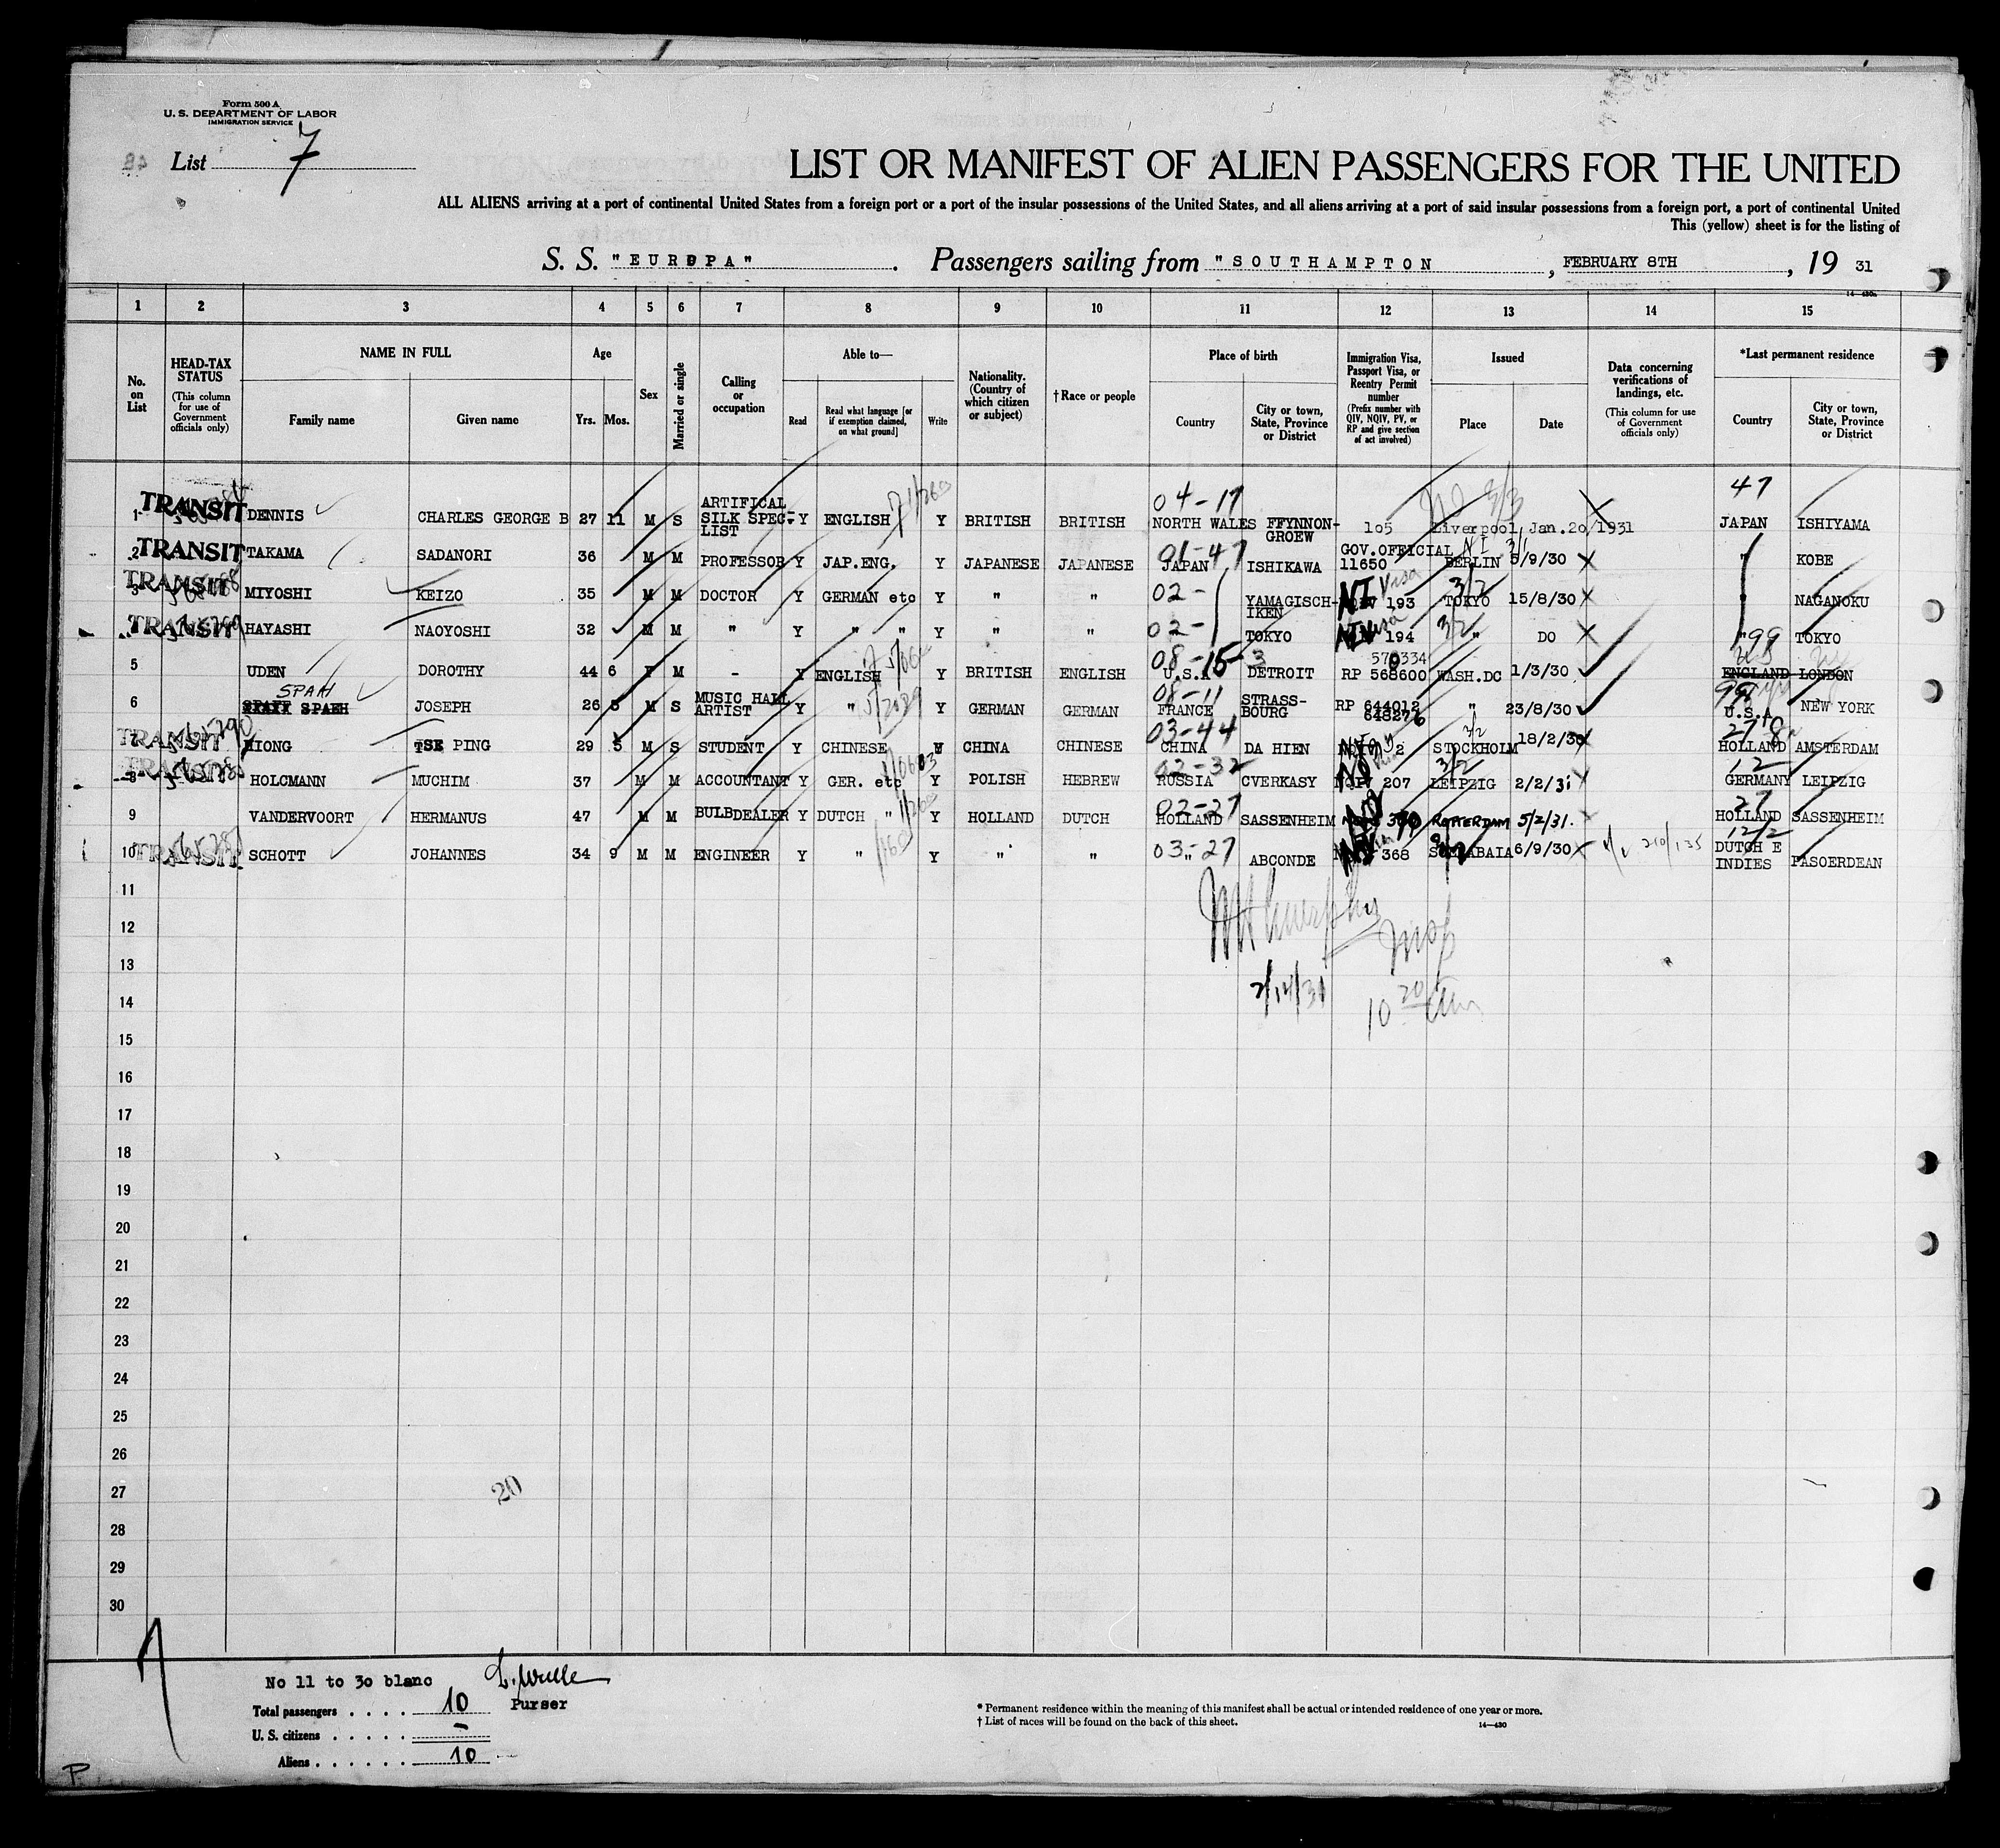 Form 500 A
U. S. DEPARTMENT OF LABOR
IMMIGRATION SERVICE
List 7
LIST OR MANIFEST OF ALIEN PASSENGERS FOR THE UNITED
ALL ALIENS arriving at a port of continental United States from a foreign port or a port of the insular possessions of the United States, and all aliens arriving at a port of said insular possessions from a foreign port, a port of continental United
This (yellow) sheet is for the listing of
S. S. "EUROPA". Passengers sailing from "SOUTHAMPTON, FEBRUARY 8TH, 19 31
1 2 3 4 5 6 7 8 9 10 11 12 13 14 15
No. on List
HEAD-TAX STATUS (This column for use of Government officials only)
NAME IN FULL Family name Given name
Age Yrs. Mos.
Sex
Married or single
Calling or occupation
Able to— Read Read what language [or if exemption claimed, on what ground] Write
Nationality. (Country of which citizen or subject)
†Race or people
Place of birth Country City or town, State, Province or District
Immigration Visa, Passport Visa, or Reentry Permit number (Prefix number with QIV, NQIV, PV, or RP and give section of act involved)
Issued Place Date
Data concerning verifications of landings, etc. (This column for use of Government officials only)
*Last permanent residence Country City or town, State, Province or District
04-17 47
1 TRANSIT DENNIS CHARLES GEORGE B 27 11 M S ARTIFICAL SILK SPEC- LIST Y ENGLISH Y BRITISH BRITISH NORTH WALES FFYNNON- GROEW 105 Liverpool Jan.20/1931 JAPAN ISHIYAMA
2 TRANSIT TAKAMA SADANORI 36 M M PROFESSOR Y JAP.ENG. Y JAPANESE JAPANESE 01-47 JAPAN ISHIKAWA GOV.OFFICIAL 11650 BERLIN 5/9/30 " KOBE
3 TRANSIT MIYOSHI KEIZO 35 M M DOCTOR Y GERMAN etc Y " " 02- YAMAGISCH- IKEN NI Visa 193 TOKYO 3/2 15/8/30 " NAGANOKU
TRANSIT HAYASHI NAOYOSHI 32 M M " Y " " Y " " 02- TOKYO 194 3/2 " DO " TOKYO
5 UDEN DOROTHY 44 6 F M - Y ENGLISH Y BRITISH ENGLISH 08-15-3 U.S.A DETROIT 570334 RP 568600 WASH.DC 1/3/30 99 ENGLAND LONDON
6 SPAH SPAEH JOSEPH 26 5 M S MUSIC HALL ARTIST Y " Y GERMAN GERMAN 08-11 FRANCE STRASS- BOURG RP 644012 648276 " 23/8/30 U.S.A NEW YORK
7 TRANSIT HIONG TSE PING 29 5 M S STUDENT Y CHINESE Y CHINA CHINESE 03-44 CHINA DA HIEN 2 STOCKHOLM 18/2/30 HOLLAND AMSTERDAM
8 TRANSIT HOLCMANN MUCHIM 37 M M ACCOUNTANT Y GER. etc Y POLISH HEBREW 02-32 RUSSIA CVERKASY 207 LEIPZIG 3/2 2/2/31 12 GERMANY LEIPZIG
9 VANDERVOORT HERMANUS 47 M M BULBDEALER Y DUTCH " Y HOLLAND DUTCH 02-27 HOLLAND SASSENHEIM ROTTERDAM 5/2/31. 27 HOLLAND SASSENHEIM
10 TRANSIT SCHOTT JOHANNES 34 9 M M ENGINEER Y " Y " " 03-27 " ABCONDE 368 6/9/30 210/135 12/2 DUTCH E INDIES PASOERDEAN
11
12
13
14 2/14/31
15
16
17
18
19
20
21
22
23
24
25
26
27 20
28
29
30
No 11 to 30 blanc
Purser
Total passengers . . . . 10
U. S. citizens . . . . . -
Aliens . . . . . . 10
* Permanent residence within the meaning of this manifest shall be actual or intended residence of one year or more.
† List of races will be found on the back of this sheet. 14—430
P